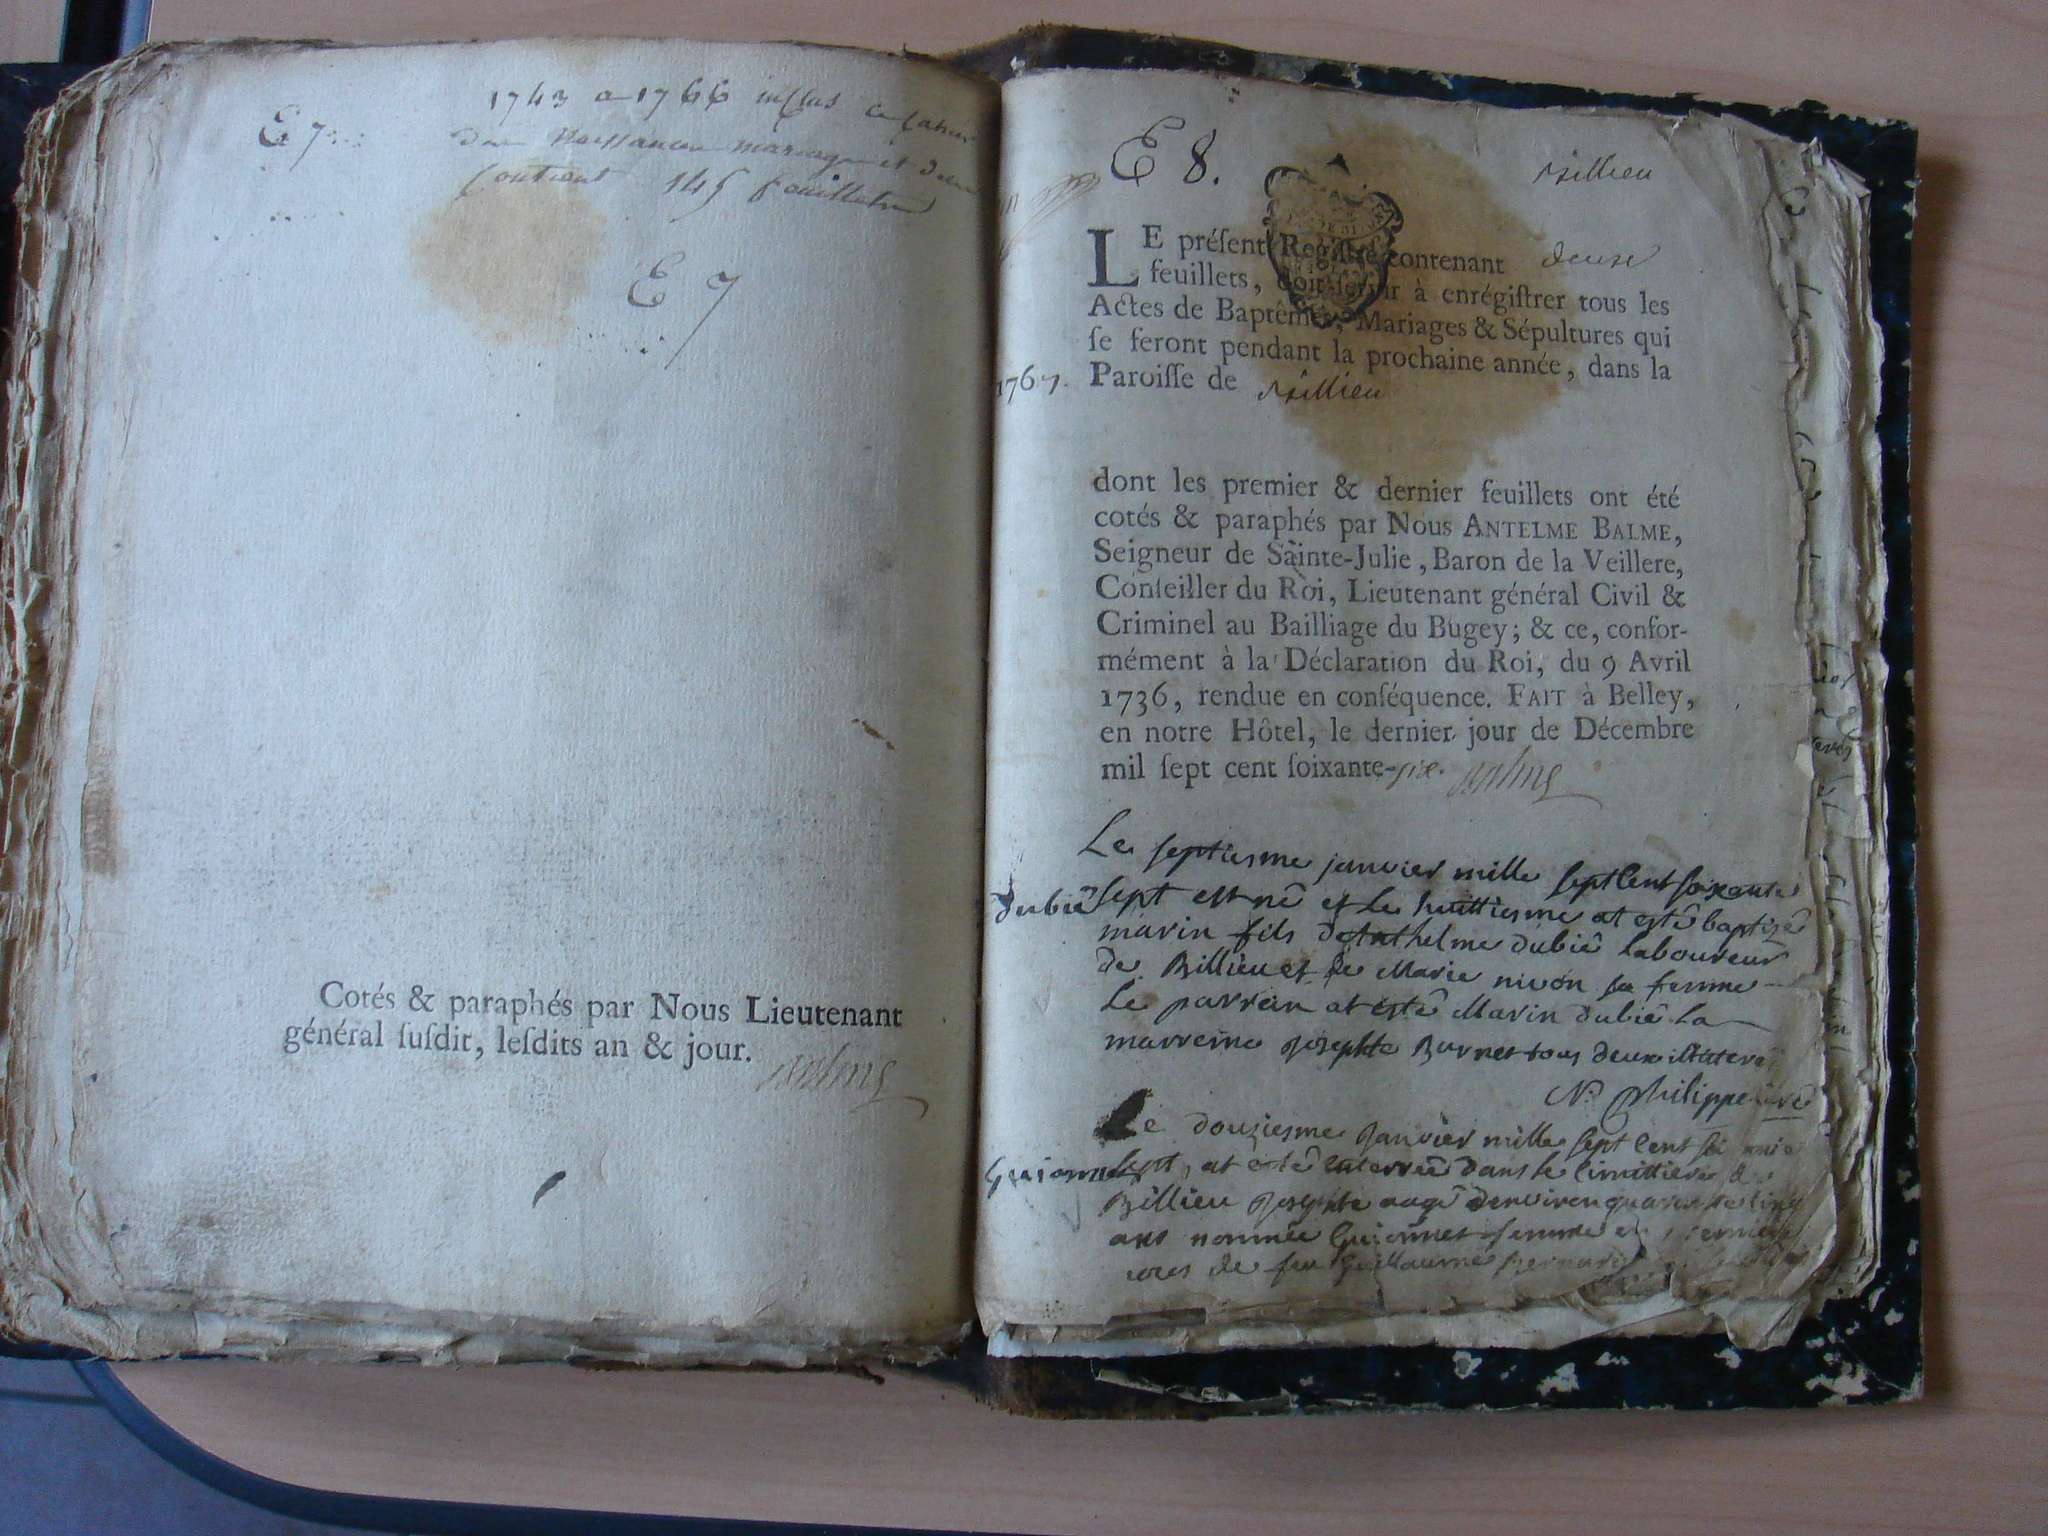 E 7
1743 a 1766 inclus ce cahier
des Naissances mariages et deces
contient 145 feuillets
E 7
Cotés & paraphés par Nous Lieutenant
général ſuſdit, leſdits an & jour.
Balme
E 8.
Billieu
LE préſent Regiſtre contenant douse
feuillets, doit ſervir à enrégiſtrer tous les
Actes de Baptêmes, Mariages & Sépultures qui
ſe feront pendant la prochaine année, dans la
1767. Paroiſſe de Billieu
dont les premier & dernier feuillets ont été
cotés & paraphés par Nous ANTELME BALME,
Seigneur de Sainte-Julie, Baron de la Veillere,
Conſeiller du Roi, Lieutenant général Civil &
Criminel au Bailliage du Bugey; & ce, confor-
mément à la Déclaration du Roi, du 9 Avril
1736, rendue en conſéquence. FAIT à Belley,
en notre Hôtel, le dernier jour de Décembre
mil ſept cent ſoixante-six. Balme
Le septiesme janvier mille sept Cent soixante
dubié sept est né et le huittiesme at esté baptisé
marin fils dAnthelme dubié laboureur
de Billieu et de Marie nivon sa femme
le parrein at esté Marin dubié la
marreine Josephte Burnet tous deux illiteré
N. Philippe curé
Le douziesme Janvier mille sept Cent
Guionnet sept, at esté enterrée dans le Cimittiere de
Billieu Josephte aagé denviron quarante cinq
ans nommée Guionnet femme en
de feu Guillaume Bernard